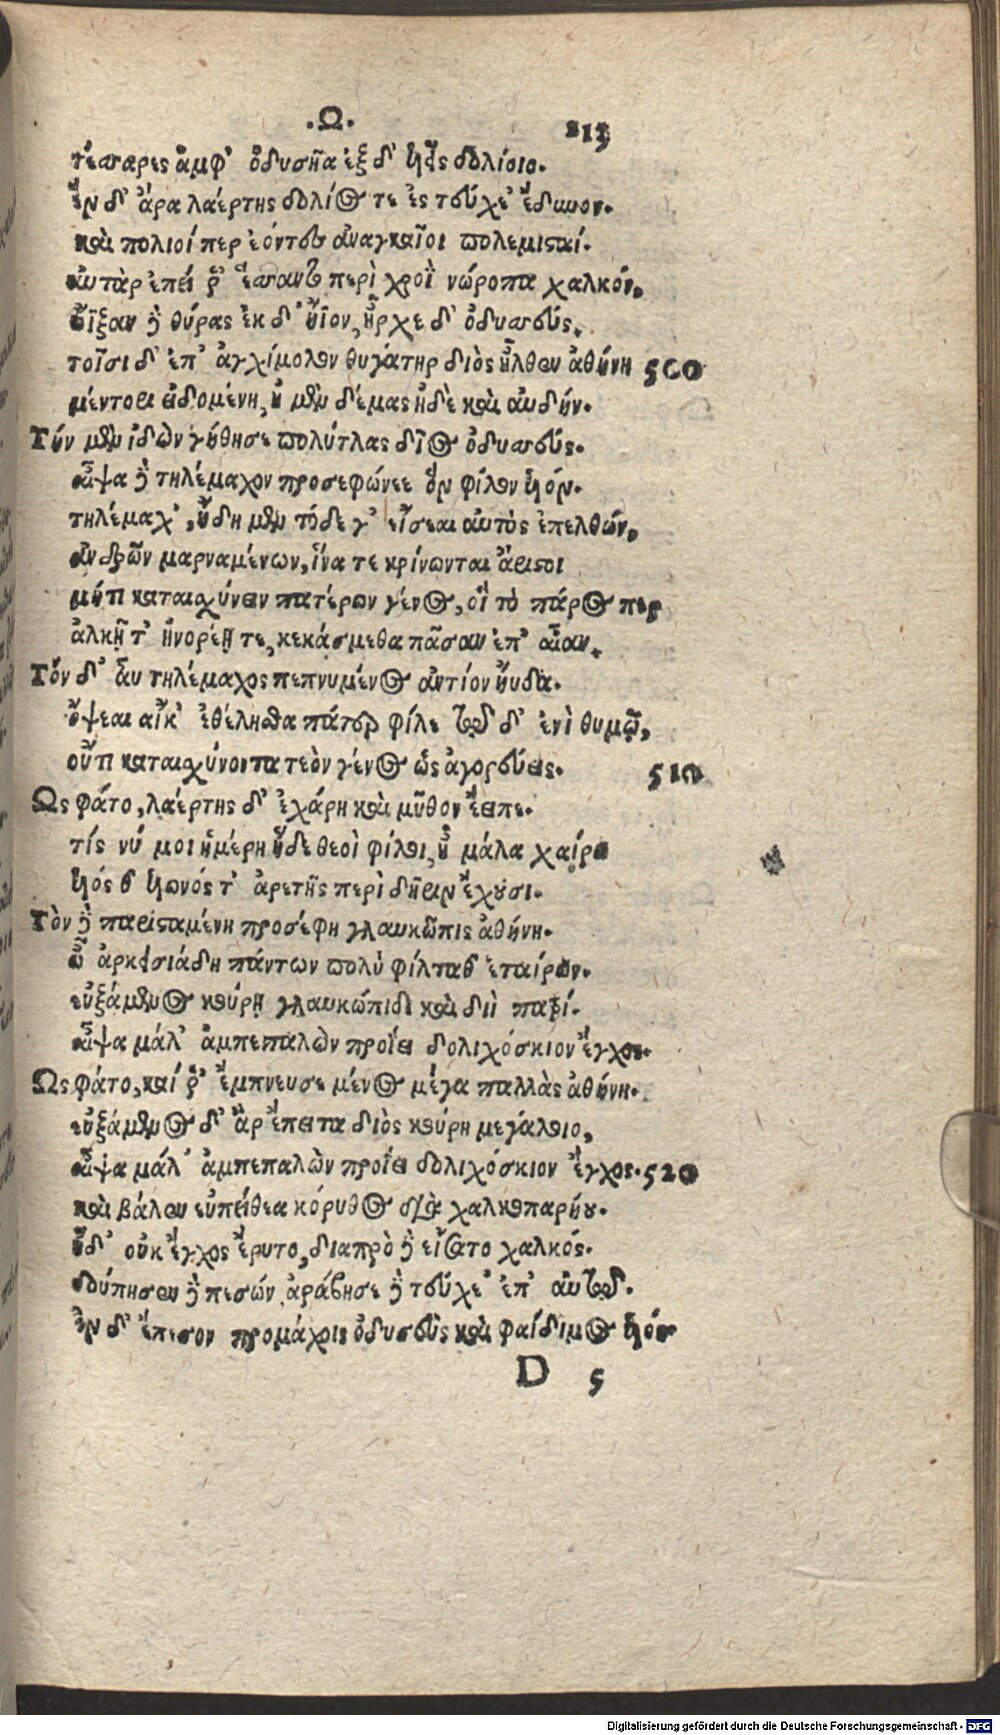 .Ω. 213
τέσσαρες ἀμφ' ὀδυσῆα ἓξ δ' ἱῆες δολίοιο.
ἓν δ' ἄρα λαέρτης δολίος τε ἐς τεύχε' ἔδυνον.
καὶ πολιοί περ ἐόντες ἀναγκαῖοι πολεμισταί.
αὐτὰρ ἐπεί ῥ' ἕσσαντο περὶ χροῒ νώροπα χαλκόν,
ὤϊξαν δὲ θύρας ἐκ δ' ἤϊον, ἦρχε δ' ὀδυσσεύς,
τοῖσι δ' ἐπ' ἀγχίμολον θυγάτηρ διὸς ἦλθεν ἀθήνη 500
μέντορι εἰδομένη, ἠ μὲν δέμας ἠδὲ καὶ αὐδήν.
Τήν μὲν ἰδὼν γήθησε πολύτλας δῖος ὀδυσσεύς.
αἶψα δὲ τηλέμαχον προσεφώνεε ὃν φίλον ἱόν.
τηλέμαχ', ἤδη μὲν τόδε γ' εἴσεαι αὐτὸς ἐπελθών,
ἀνδρῶν μαρναμένων, ἵνα τε κρίνωνται ἄριστοι
μήτι καταισχύνειν πατέρων γένος, οἳ τὸ πάρος περ
ἀλκῇ τ' ἠνορέῃ τε, κεκάσμεθα πᾶσαν ἐπ' αἶαν.
Τὸν δ' αὖ τηλέμαχος πεπνυμένος ἀντίον ηὔδα.
ὄψεαι αἴκ' ἐθέλησθα πάτερ φίλε τῷδ' ἐνὶ θυμῷ,
οὔτι καταισχύνοντα τεὸν γένος ὡς ἀγορεύεις. 510
Ὣς φάτο, λαέρτης δ' ἐχάρη καὶ μῦθον ἔειπε.
τίς νύ μοι ἡμέρη ἥδε θεοὶ φίλοι, ἦ μάλα χαίρω
ἱός θ' ἱωνός τ' ἀρετῆς περὶ δῆριν ἔχουσι.
Τὸν δὲ παρισταμένη προσέφη γλαυκῶπις ἀθήνη.
ὦ ἀρκεισιάδη πάντων πολὺ φίλταθ' ἑταίρων.
εὐξάμενος κούρῃ γλαυκώπιδι καὶ διῒ πατρί.
αἶψα μάλ' ἀμπεπαλὼν προΐει δολιχόσκιον ἔγχος.
Ὣς φάτο, καί ῥ' ἔμπνευσε μένος μέγα παλλὰς ἀθήνη.
εὐξάμενος δ' ἂρ ἔπειτα διὸς κούρῃ μεγάλοιο,
αἶψα μάλ' ἀμπεπαλὼν προΐει δολιχόσκιον ἔγχος. 520
καὶ βάλεν εὐπείθεα κόρυθος διὰ χαλκοπαρήου.
ἡδ' οὐκ ἔγχος ἔρυτο, διαπρὸ δὲ εἴσατο χαλκός.
δούπησεν δὲ πεσών ἀράβησε δὲ τεύχε' ἐπ' αὐτῷ.
ἓν δ' ἔπεσον προμάχοις ὀδυσεὺς καὶ φαίδιμος ἱός
D 5
Digitalisierung gefördert durch die Deutsche Forschungsgemeinschaft - DFG